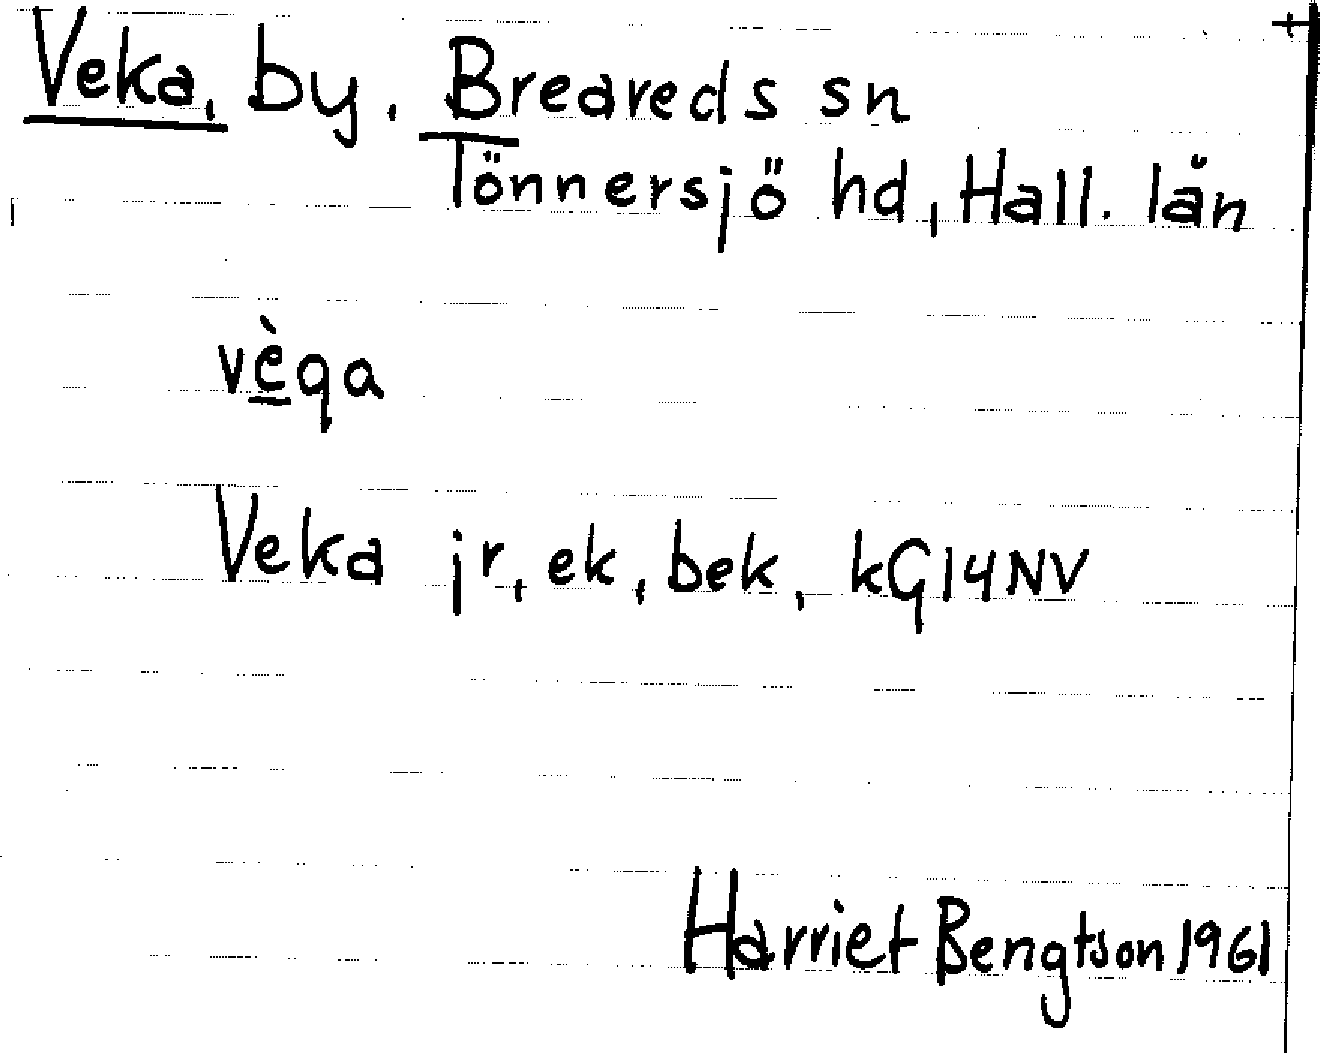 Veka, by. Breareds sn
Tönnersjö hd, Hall. län
vèqa
Veka jr, ek, bek, kG14NV
Harriet Bengtson 1961